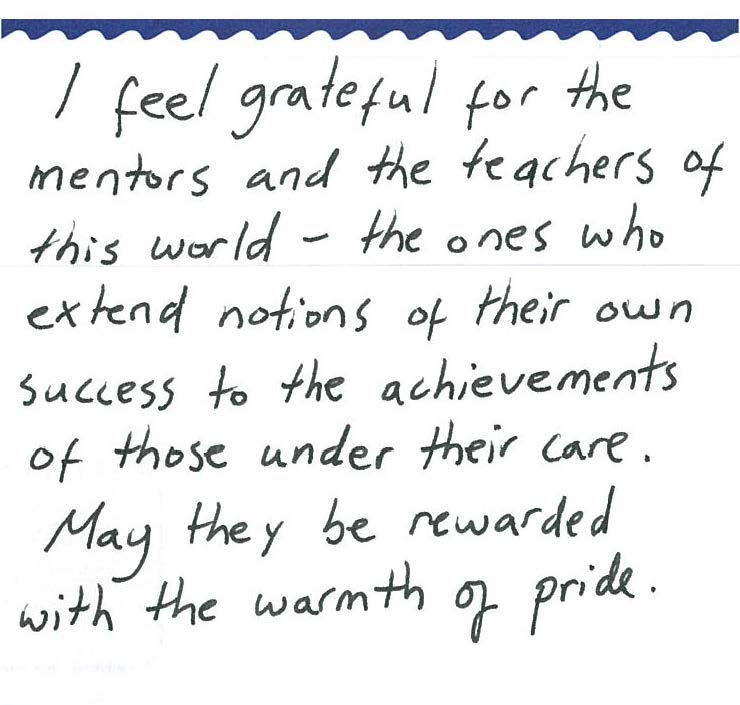 I feel grateful for the
mentors and the teachers of
this world - the ones who
extend notions of their own
success to the achievements
of those under their care.
May they be rewarded
with the warmth of pride.